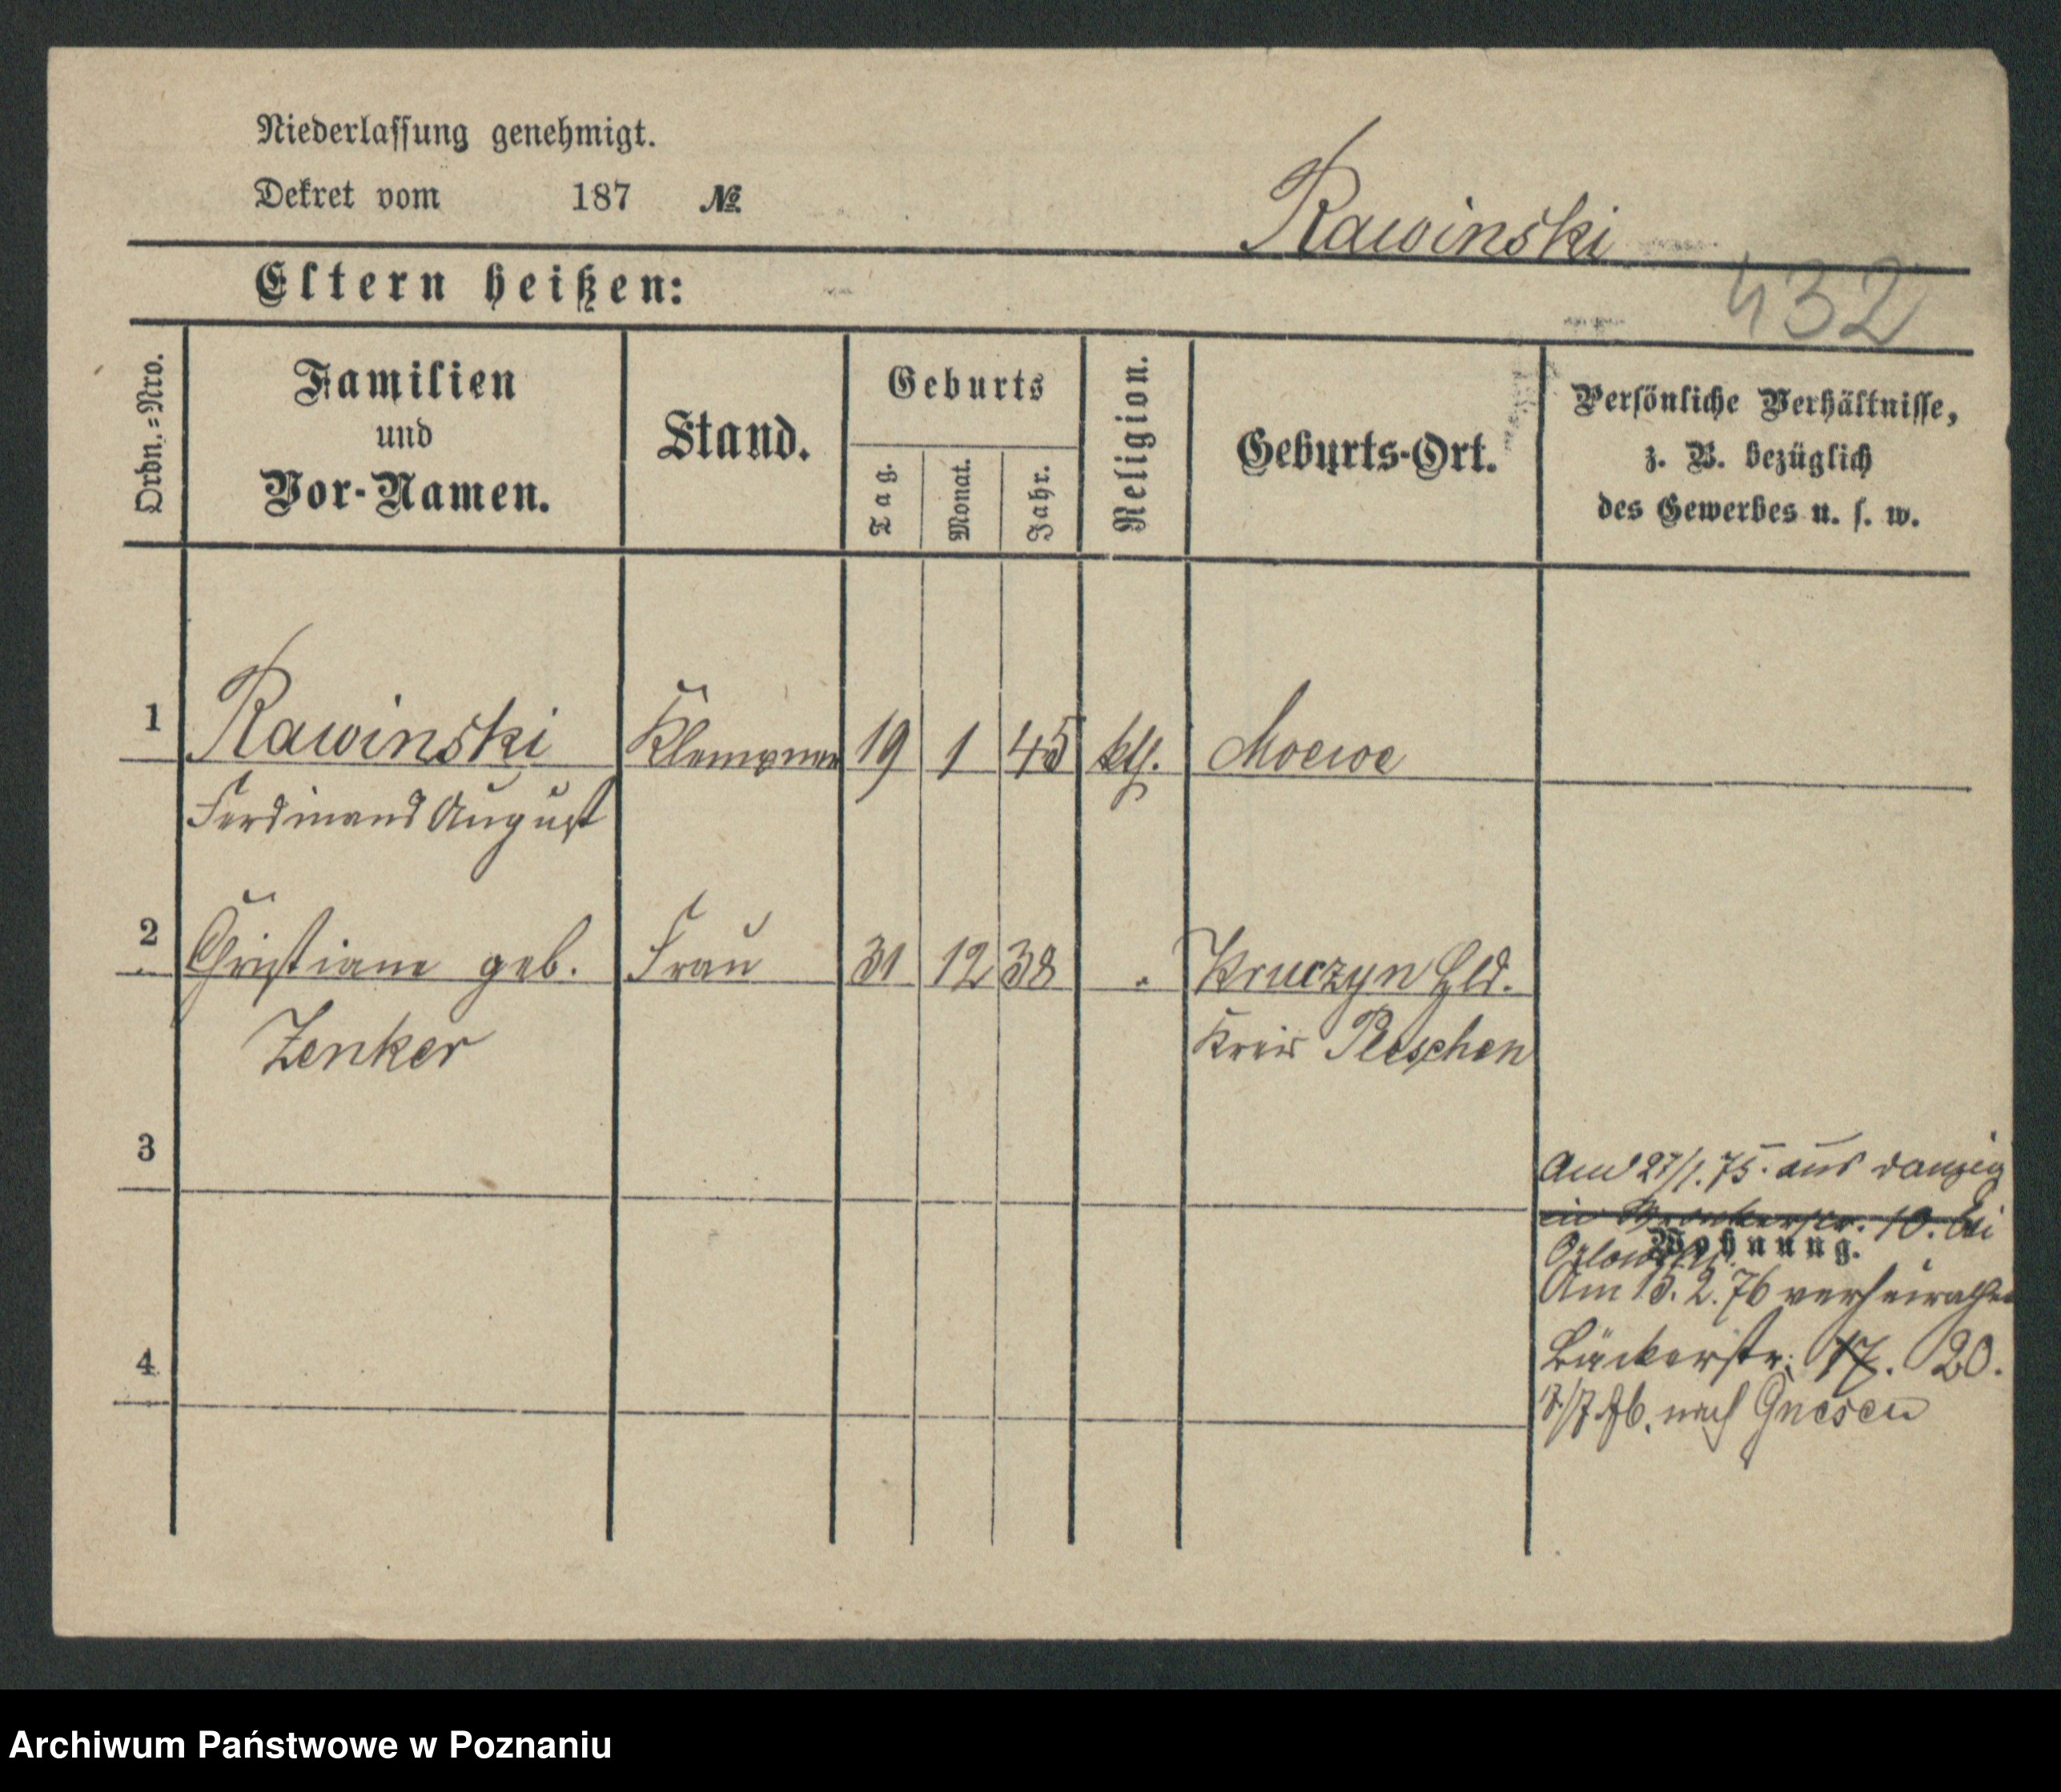 Niederlassung genehmigt.
Dekret vom 187 №
Rawinski
432
Eltern heißen:
Ordn.=Nro.
Familien
und
Vor-Namen.
Stand.
Geburts
Tag.
Monat.
Jahr.
Religion.
Geburts-Ort.
Persönliche Verhältnisse,
z. B. bezüglich
des Gewerbes u. s. w.
1 Rawinski Klempner 19 1 45 kth. Moewe
Ferdinand August
2 Christiane geb. Frau 31 12 38 " Kruczyn Hld.
Zenker Kreis Pleschen
3
Am 27/1. 75. aus Danzig
in 10. bei
Wohnung.
Orlowski.
Am 13. 2. 76 verheirathet
4 Bäckerstr. 17. 20.
nach Gnesen
Archiwum Państwowe w Poznaniu